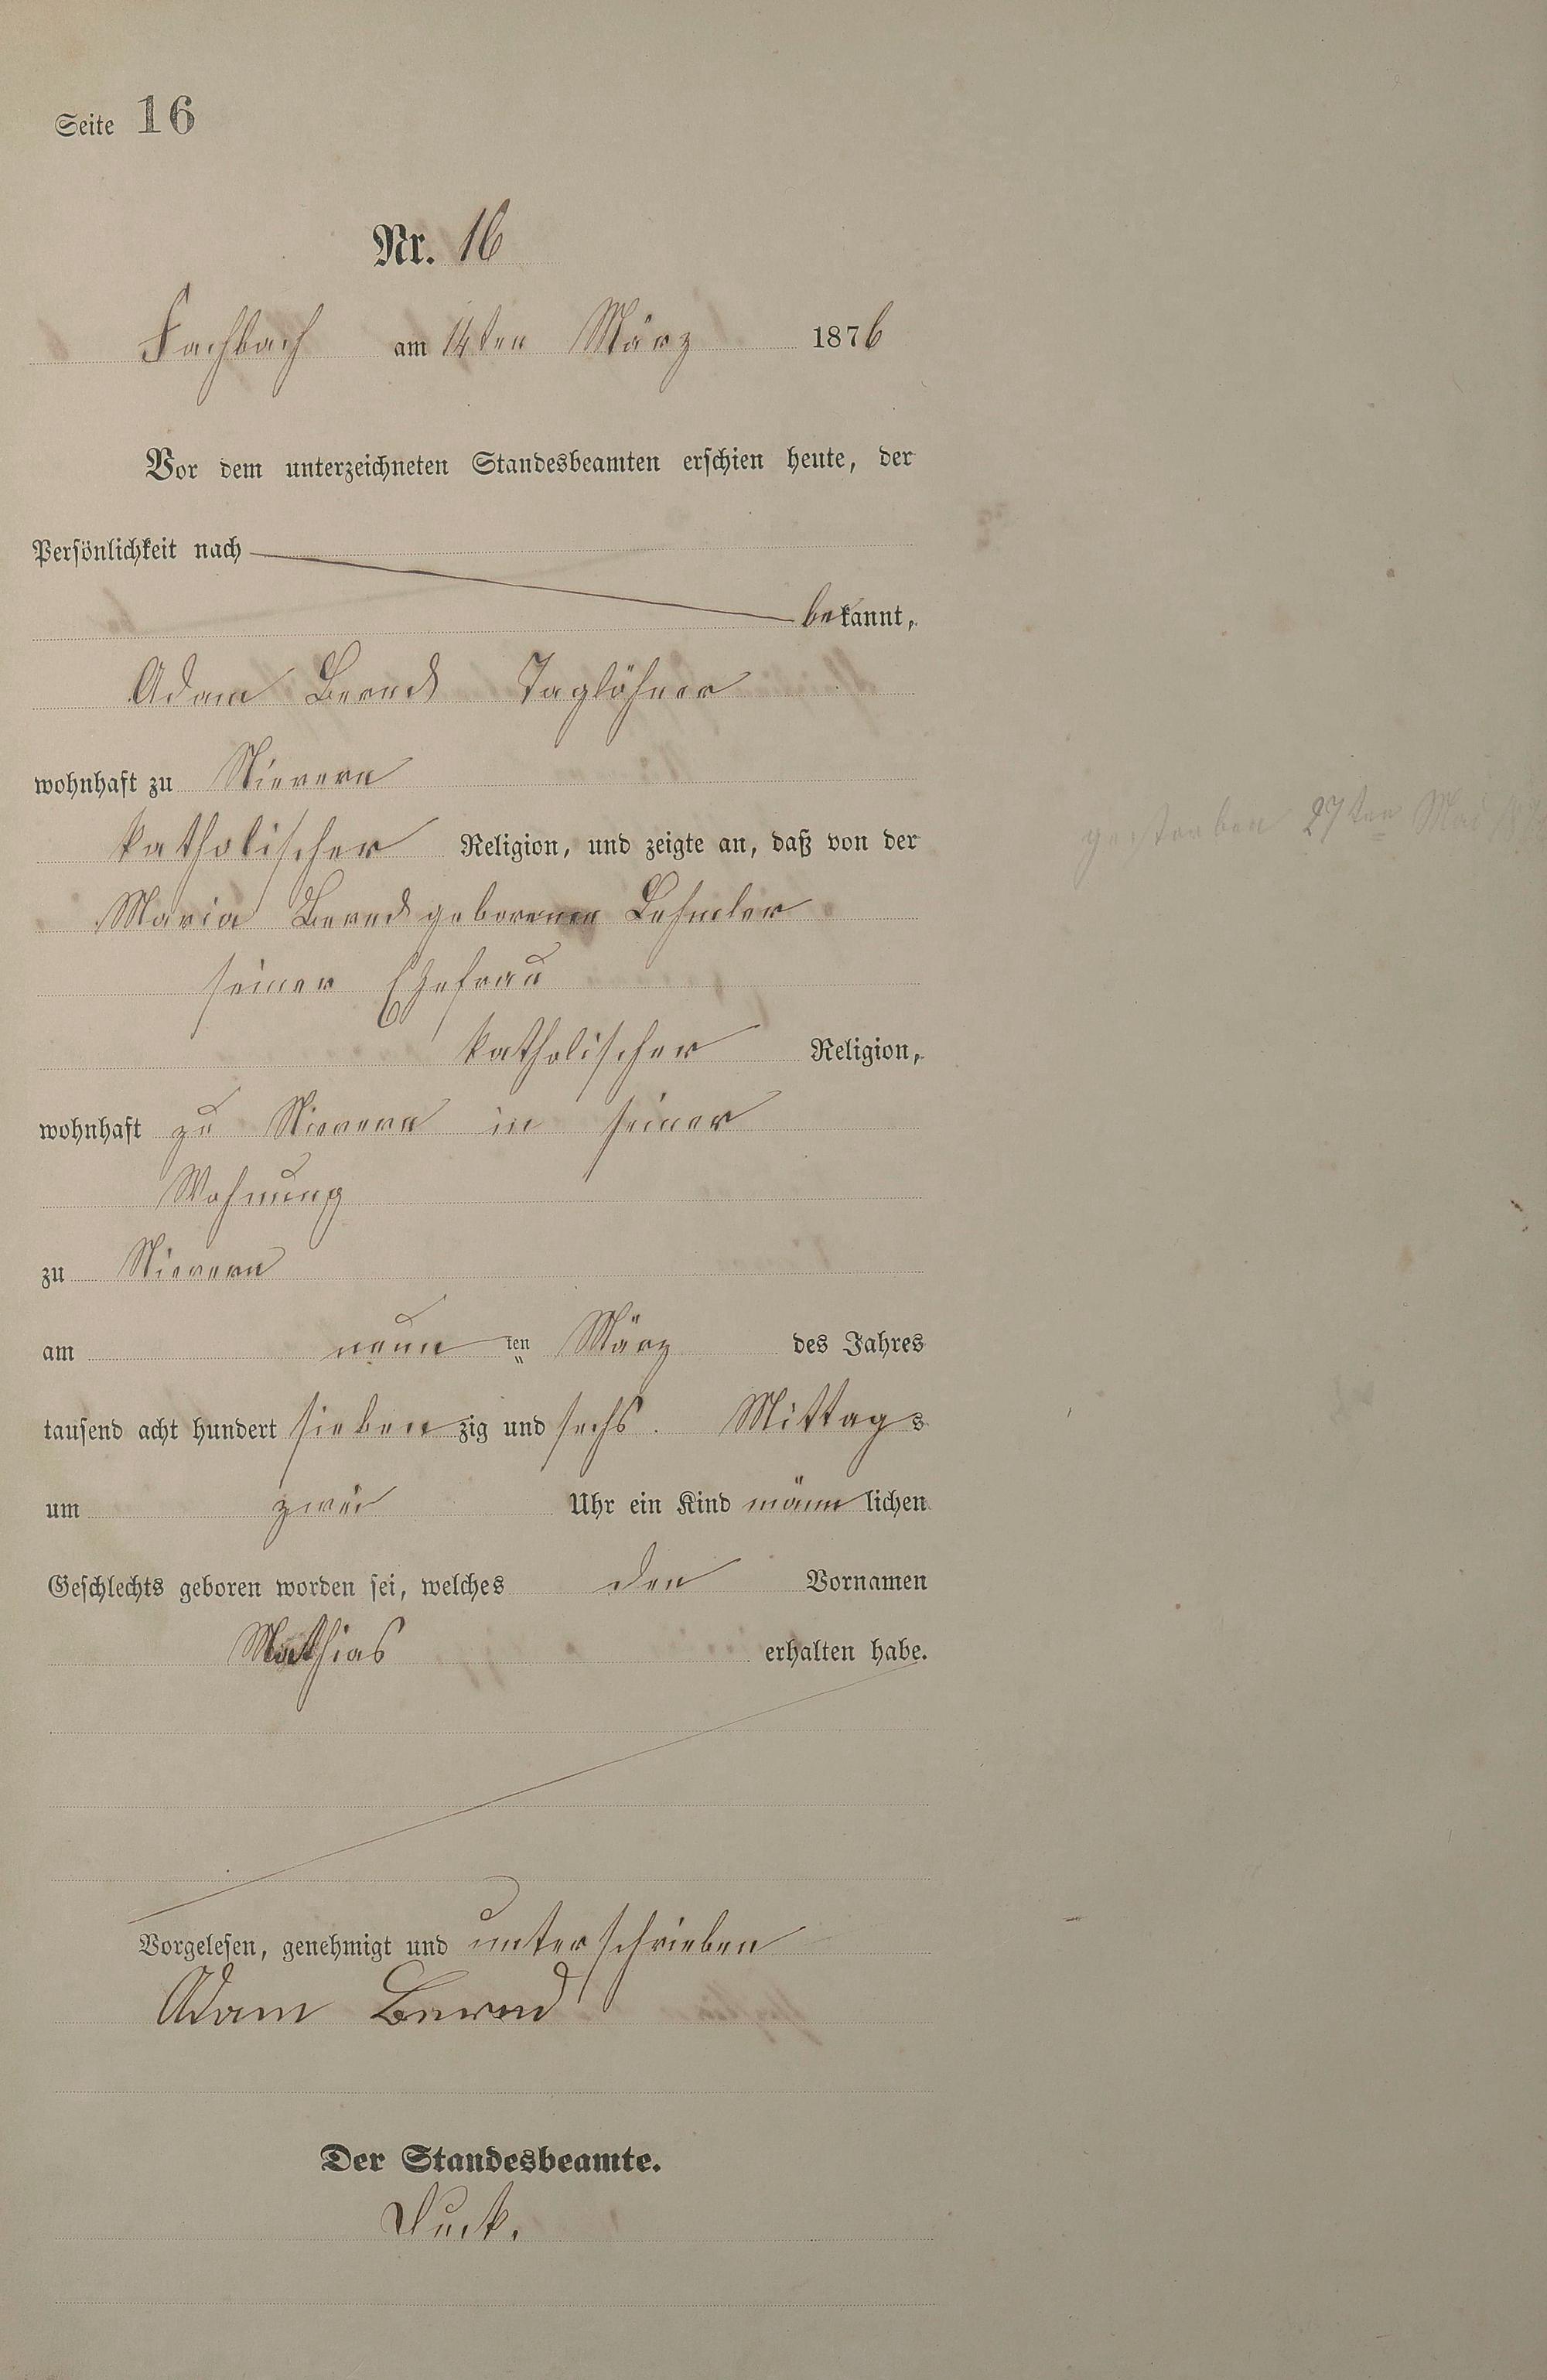 Seite 16
Nr. 16
Fachbach am 14ten März 1876
Vor dem unterzeichneten Standesbeamten erschien heute, der
Persönlichkeit nach
bekannt,
Adam Bernd Taglöhner
wohnhaft zu Nievern
katholischer Religion, und zeigte an, daß von der
Maria Bernd geborenen
seiner Ehefrau
katholischer Religion,
wohnhaft zu Nievern in seiner
Wohnung
zu Nievern
am neun ten März des Jahres
tausend acht hundert sieben zig und sechs. Mittags
um zwei Uhr ein Kind männlichen
Geschlechts geboren worden sei, welches den Vornamen
Mathias erhalten habe.
Vorgelesen, genehmigt und unterschrieben
Adam Bernd
Der Standesbeamte.
gestorben 27ten Mai